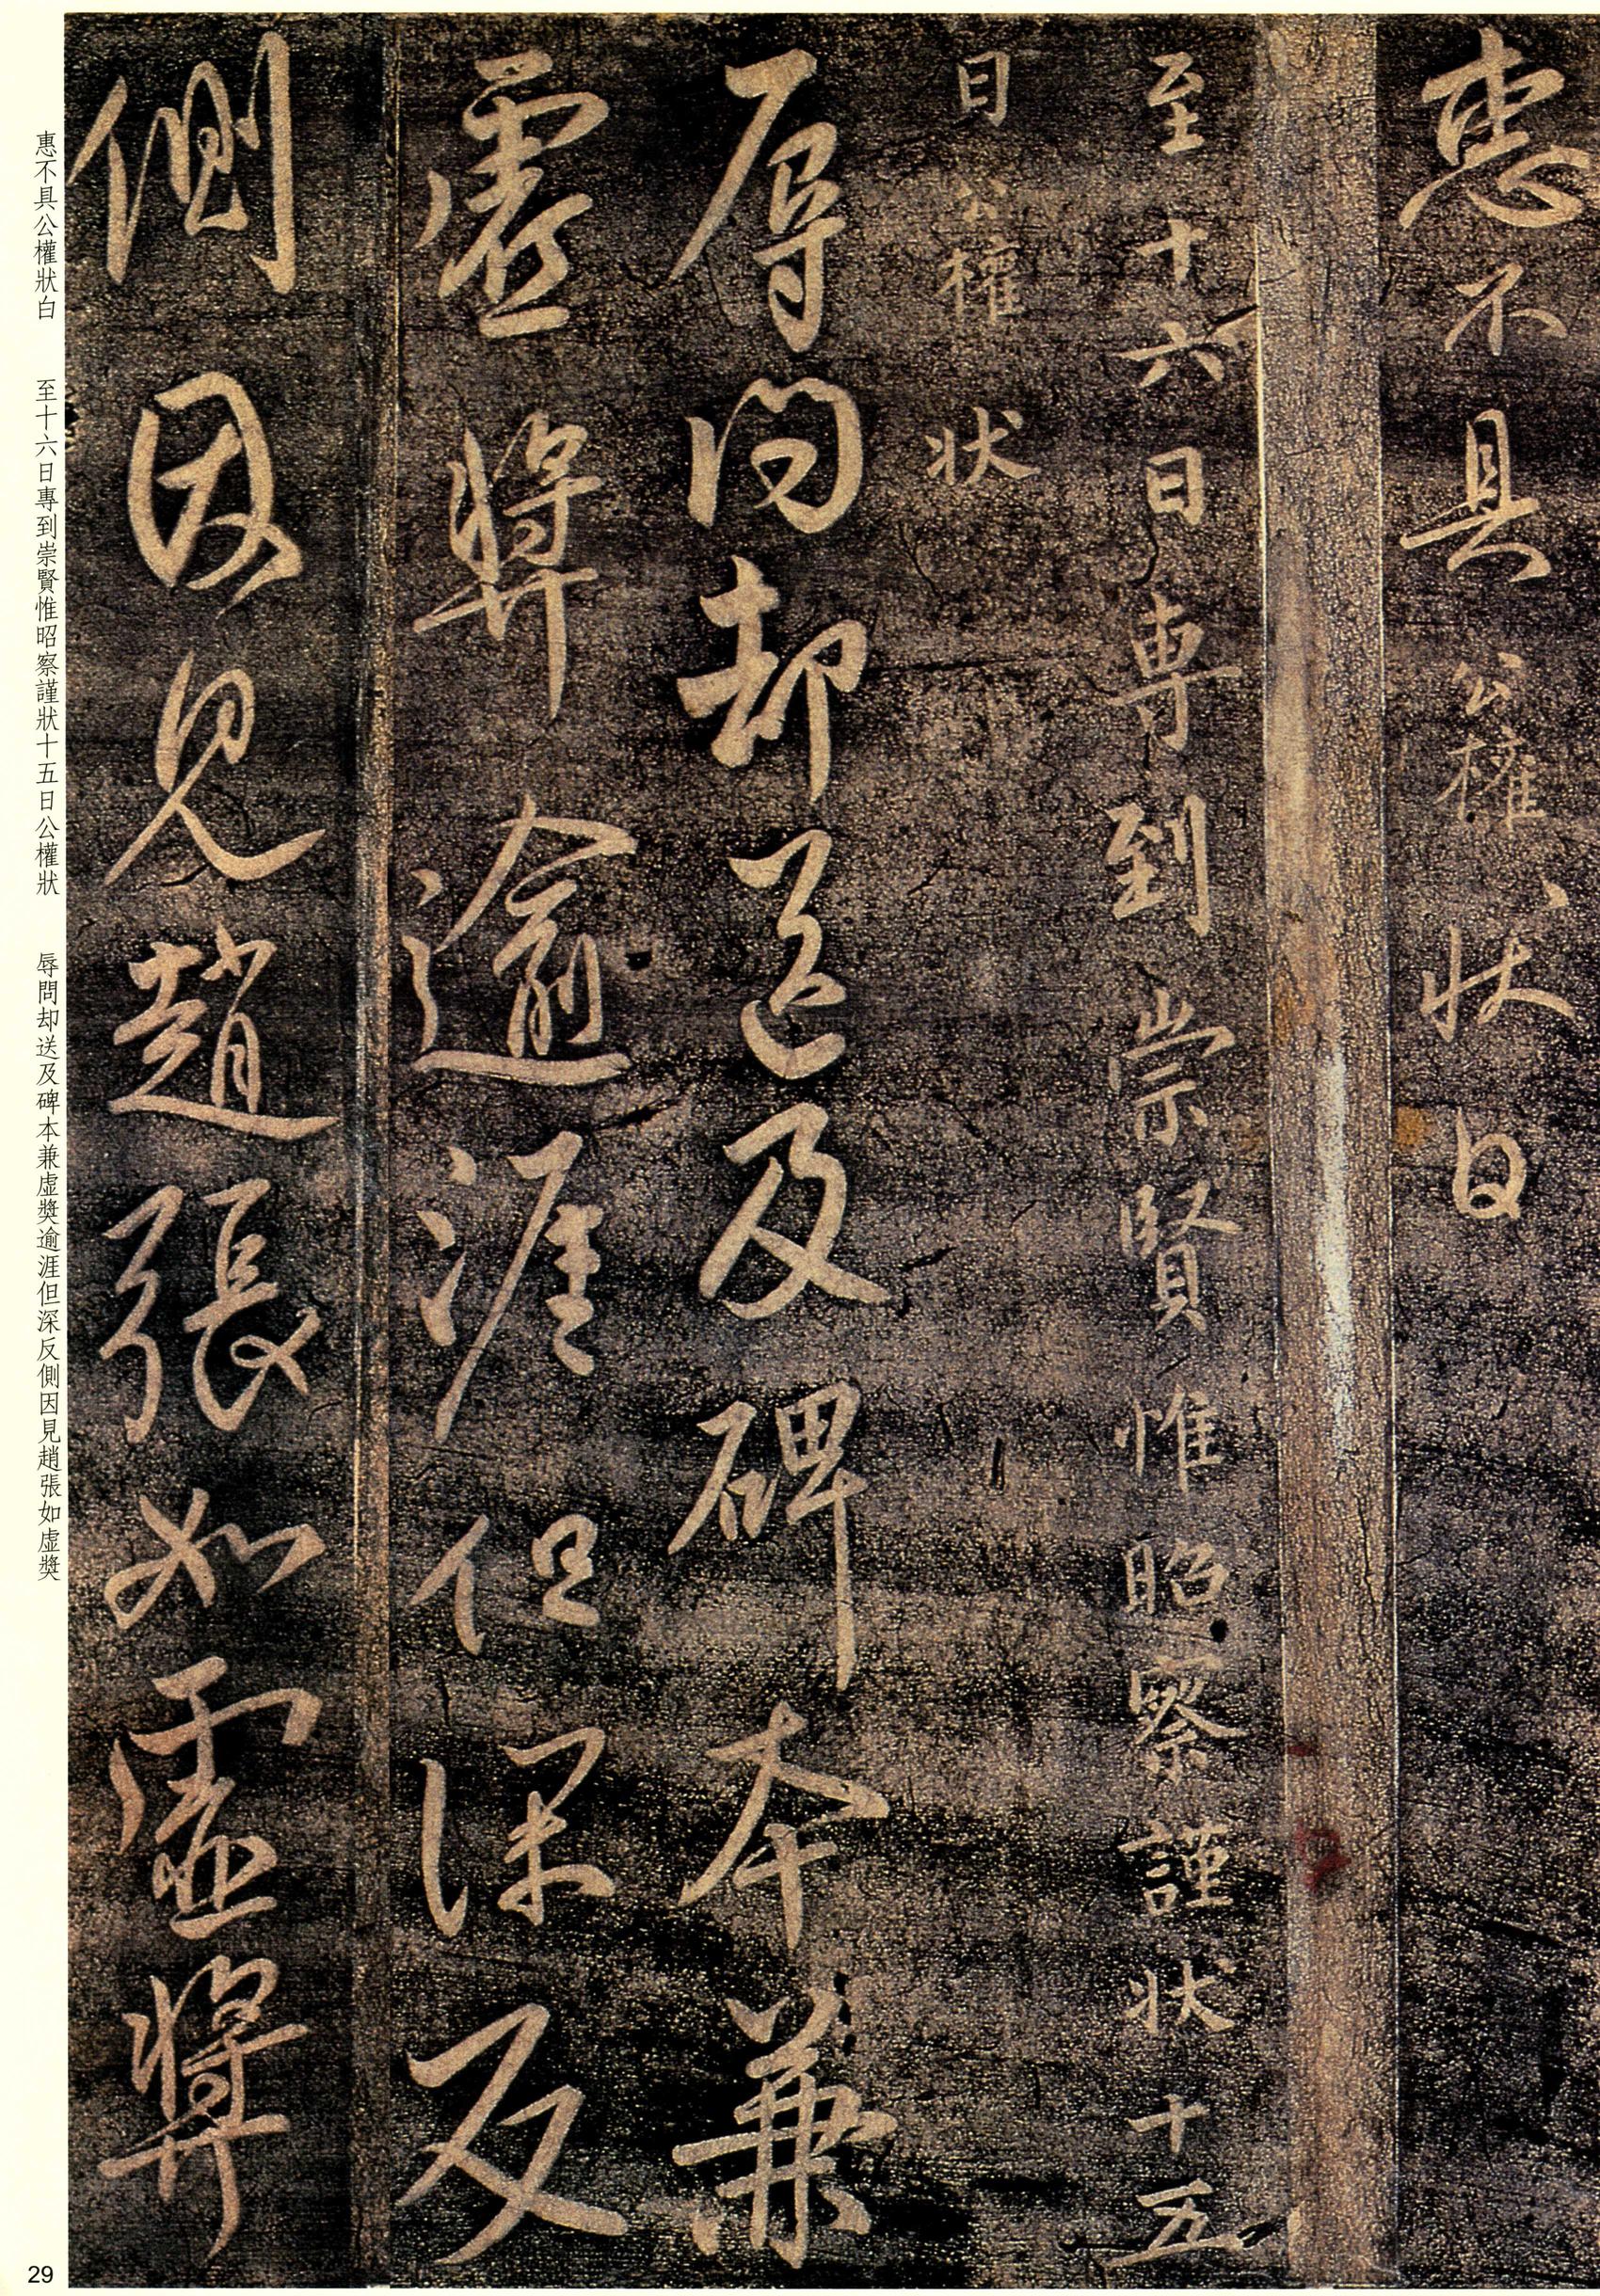 惠不具公權狀白
至十六日專到崇賢惟昭察謹狀十五
日公權狀
辱問却送及碑本兼
虛獎逾涯但深反
側因見趙張如虛獎
惠不具公權狀白 至十六日專到崇賢惟昭察謹狀十五日公權狀 辱問却送及碑本兼虛獎逾涯但深反側因見趙張如虛獎
29